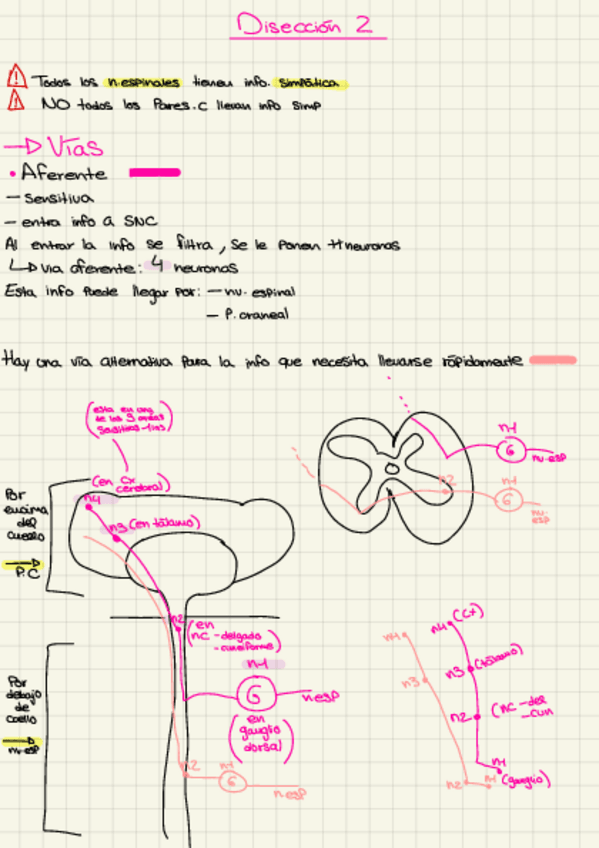 Disección 2
Todos los n.espinales tienen info. simpática
NO todos los Pares.c llevan info simp
→ Vías
• Aferente
- Sensitiva
- entra info a SNC
Al entrar la info se filtra, se le ponen ++neuronas
↳ via aferente: 4 neuronas
Esta info puede llegar por: - nv. espinal
- P. craneal
Hay una vía alternativa para la info que necesita llevarse rápidamente
(esta en una de los 3 areas
n1
G
nv.esp
n2
n1
G
nv.
esp
(en Cx
cerebral)
n4
n3 (en tálamo)
Por
encima
del
cuello
→
P.C
n2
(en
nc - delgado
- cuneiforme)
n1
G
n.esp
(en
ganglio
dorsal)
Por
debajo
de
cuello
→
n.esp
n2
n1
G
n.esp
n4 (Cx)
n4
n3 (tálamo)
n3
n2 (nc - del
- cun
n1
(ganglio)
n2
n1